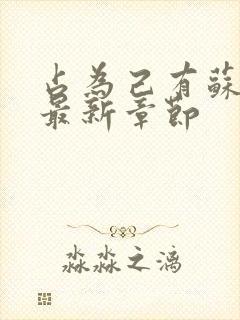 占為己有蘇
最新章節
淼淼之漓